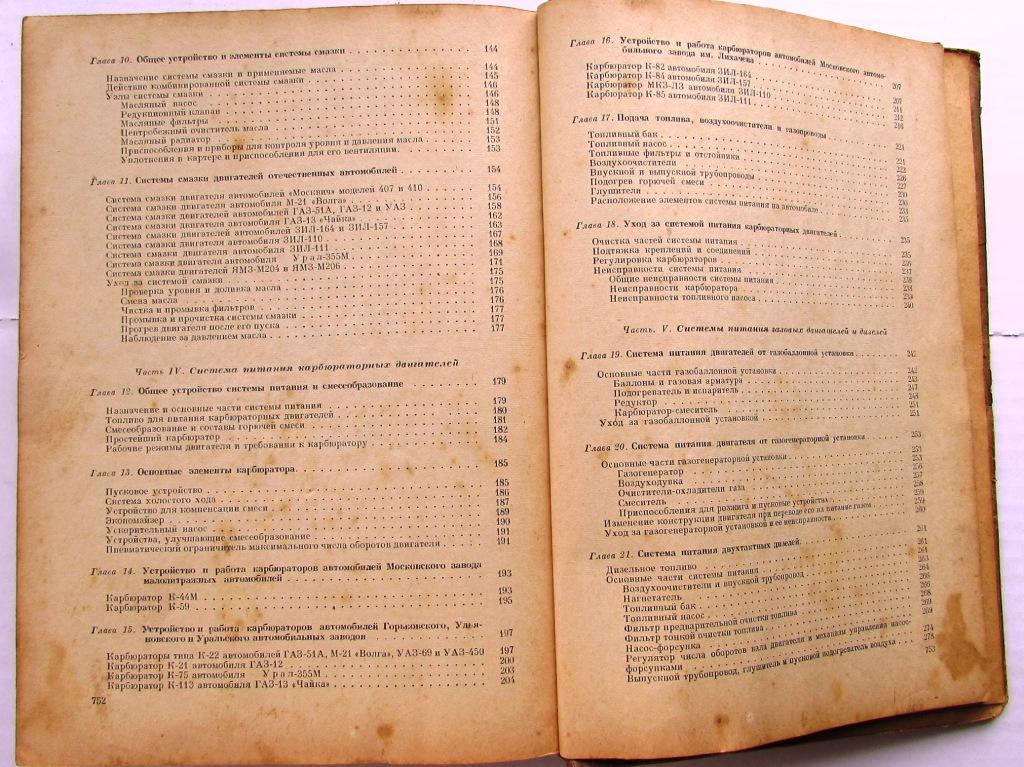 Глава 10. Общее устройство и элементы системы смазки 144
Назначение системы смазки и применяемые масла 144
Действие комбинированной системы смазки 145
Узлы системы смазки 146
Масляный насос 146
Редукционный клапан 148
Масляные фильтры 148
Центробежный очиститель масла 151
Масляный радиатор 152
Приспособления и приборы для контроля уровня и давления масла 153
Уплотнения в картере и приспособления для его вентиляции 153
Глава 11. Системы смазки двигателей отечественных автомобилей 154
Система смазки двигателя автомобилей «Москвич» моделей 407 и 410 154
Система смазки двигателя автомобиля М-21 «Волга» 156
Система смазки двигателей автомобилей ГАЗ-51А, ГАЗ-12 и УАЗ 158
Система смазки двигателя автомобиля ГАЗ-13 «Чайка» 162
Система смазки двигателей автомобилей ЗИЛ-164 и ЗИЛ-157 163
Система смазки двигателя автомобиля ЗИЛ-110 167
Система смазки двигателя автомобиля ЗИЛ-111 168
Система смазки двигателя автомобиля Урал-355М 169
Система смазки двигателей ЯМЗ-М204 и ЯМЗ-М206 171
Уход за системой смазки 175
Проверка уровня и доливка масла 175
Смена масла 176
Чистка и промывка фильтров 176
Промывка и прочистка системы смазки 177
Прогрев двигателя после его пуска 177
Наблюдение за давлением масла 177
Часть IV. Система питания карбюраторных двигателей
Глава 12. Общее устройство системы питания и смесеобразование 179
Назначение и основные части системы питания 179
Топливо для питания карбюраторных двигателей 180
Смесеобразование и составы горючей смеси 181
Простейший карбюратор 182
Рабочие режимы двигателя и требования к карбюратору 184
Глава 13. Основные элементы карбюратора 185
Пусковое устройство 185
Система холостого хода 186
Устройство для компенсации смеси 187
Экономайзер 189
Ускорительный насос 190
Устройства, улучшающие смесеобразование 191
Пневматический ограничитель максимального числа оборотов двигателя 191
Глава 14. Устройство и работа карбюраторов автомобилей Московского завода
малолитражных автомобилей 193
Карбюратор К-44М 193
Карбюратор К-59 195
Глава 15. Устройство и работа карбюраторов автомобилей Горьковского, Улья-
новского и Уральского автомобильных заводов 197
Карбюраторы типа К-22 автомобилей ГАЗ-51А, М-21 «Волга», УАЗ-69 и УАЗ-450 197
Карбюратор К-21 автомобиля ГАЗ-12 200
Карбюратор К-75 автомобиля Урал-355М 203
Карбюратор К-113 автомобиля ГАЗ-13 «Чайка» 204
752
Глава 16. Устройство и работа карбюраторов автомобилей Московского автомо-
бильного завода им. Лихачева 207
Карбюратор К-82 автомобиля ЗИЛ-164 207
Карбюратор К-84 автомобиля ЗИЛ-157 211
Карбюратор МКЗ-ЛЗ автомобиля ЗИЛ-110 212
Карбюратор К-85 автомобиля ЗИЛ-111 216
Глава 17. Подача топлива, воздухоочистители и газопроводы 221
Топливный бак 221
Топливный насос 222
Топливные фильтры и отстойники 226
Воздухоочистители 227
Впускной и выпускной трубопроводы 230
Подогрев горючей смеси 230
Глушители 233
Расположение элементов системы питания на автомобиле 233
Глава 18. Уход за системой питания карбюраторных двигателей 235
Очистка частей системы питания 235
Подтяжка креплений и соединений 236
Регулировка карбюраторов 237
Неисправности системы питания 238
Общие неисправности системы питания 238
Неисправности карбюратора 239
Неисправности топливного насоса 240
Часть. V. Системы питания газовых двигателей и дизелей
Глава 19. Система питания двигателей от газобаллонной установки 242
Основные части газобаллонной установки 242
Баллоны и газовая арматура 243
Подогреватель и испаритель 247
Редуктор 248
Карбюратор-смеситель 251
Уход за газобаллонной установкой 251
Глава 20. Система питания двигателя от газогенераторной установки 253
Основные части газогенераторной установки 253
Газогенератор 253
Воздуходувка 256
Очистители-охладители газа 257
Смеситель 258
Приспособления для розжига и пусковые устройства 259
Изменение конструкции двигателя при переводе его на питание газом 259
Уход за газогенераторной установкой и ее неисправность 260
Глава 21. Система питания двухтактных дизелей 261
Дизельное топливо 261
Основные части системы питания 261
Воздухоочистители и впускной трубопровод 263
Нагнетатель 264
Топливный бак 266
Топливный насос 266
Фильтр предварительной очистки топлива 268
Фильтр тонкой очистки топлива 269
Насос-форсунка 269
Регулятор числа оборотов вала двигателя и механизм управления насос-
форсунками 274
Выпускной трубопровод, глушитель и пусковой подогреватель воздуха 278
753